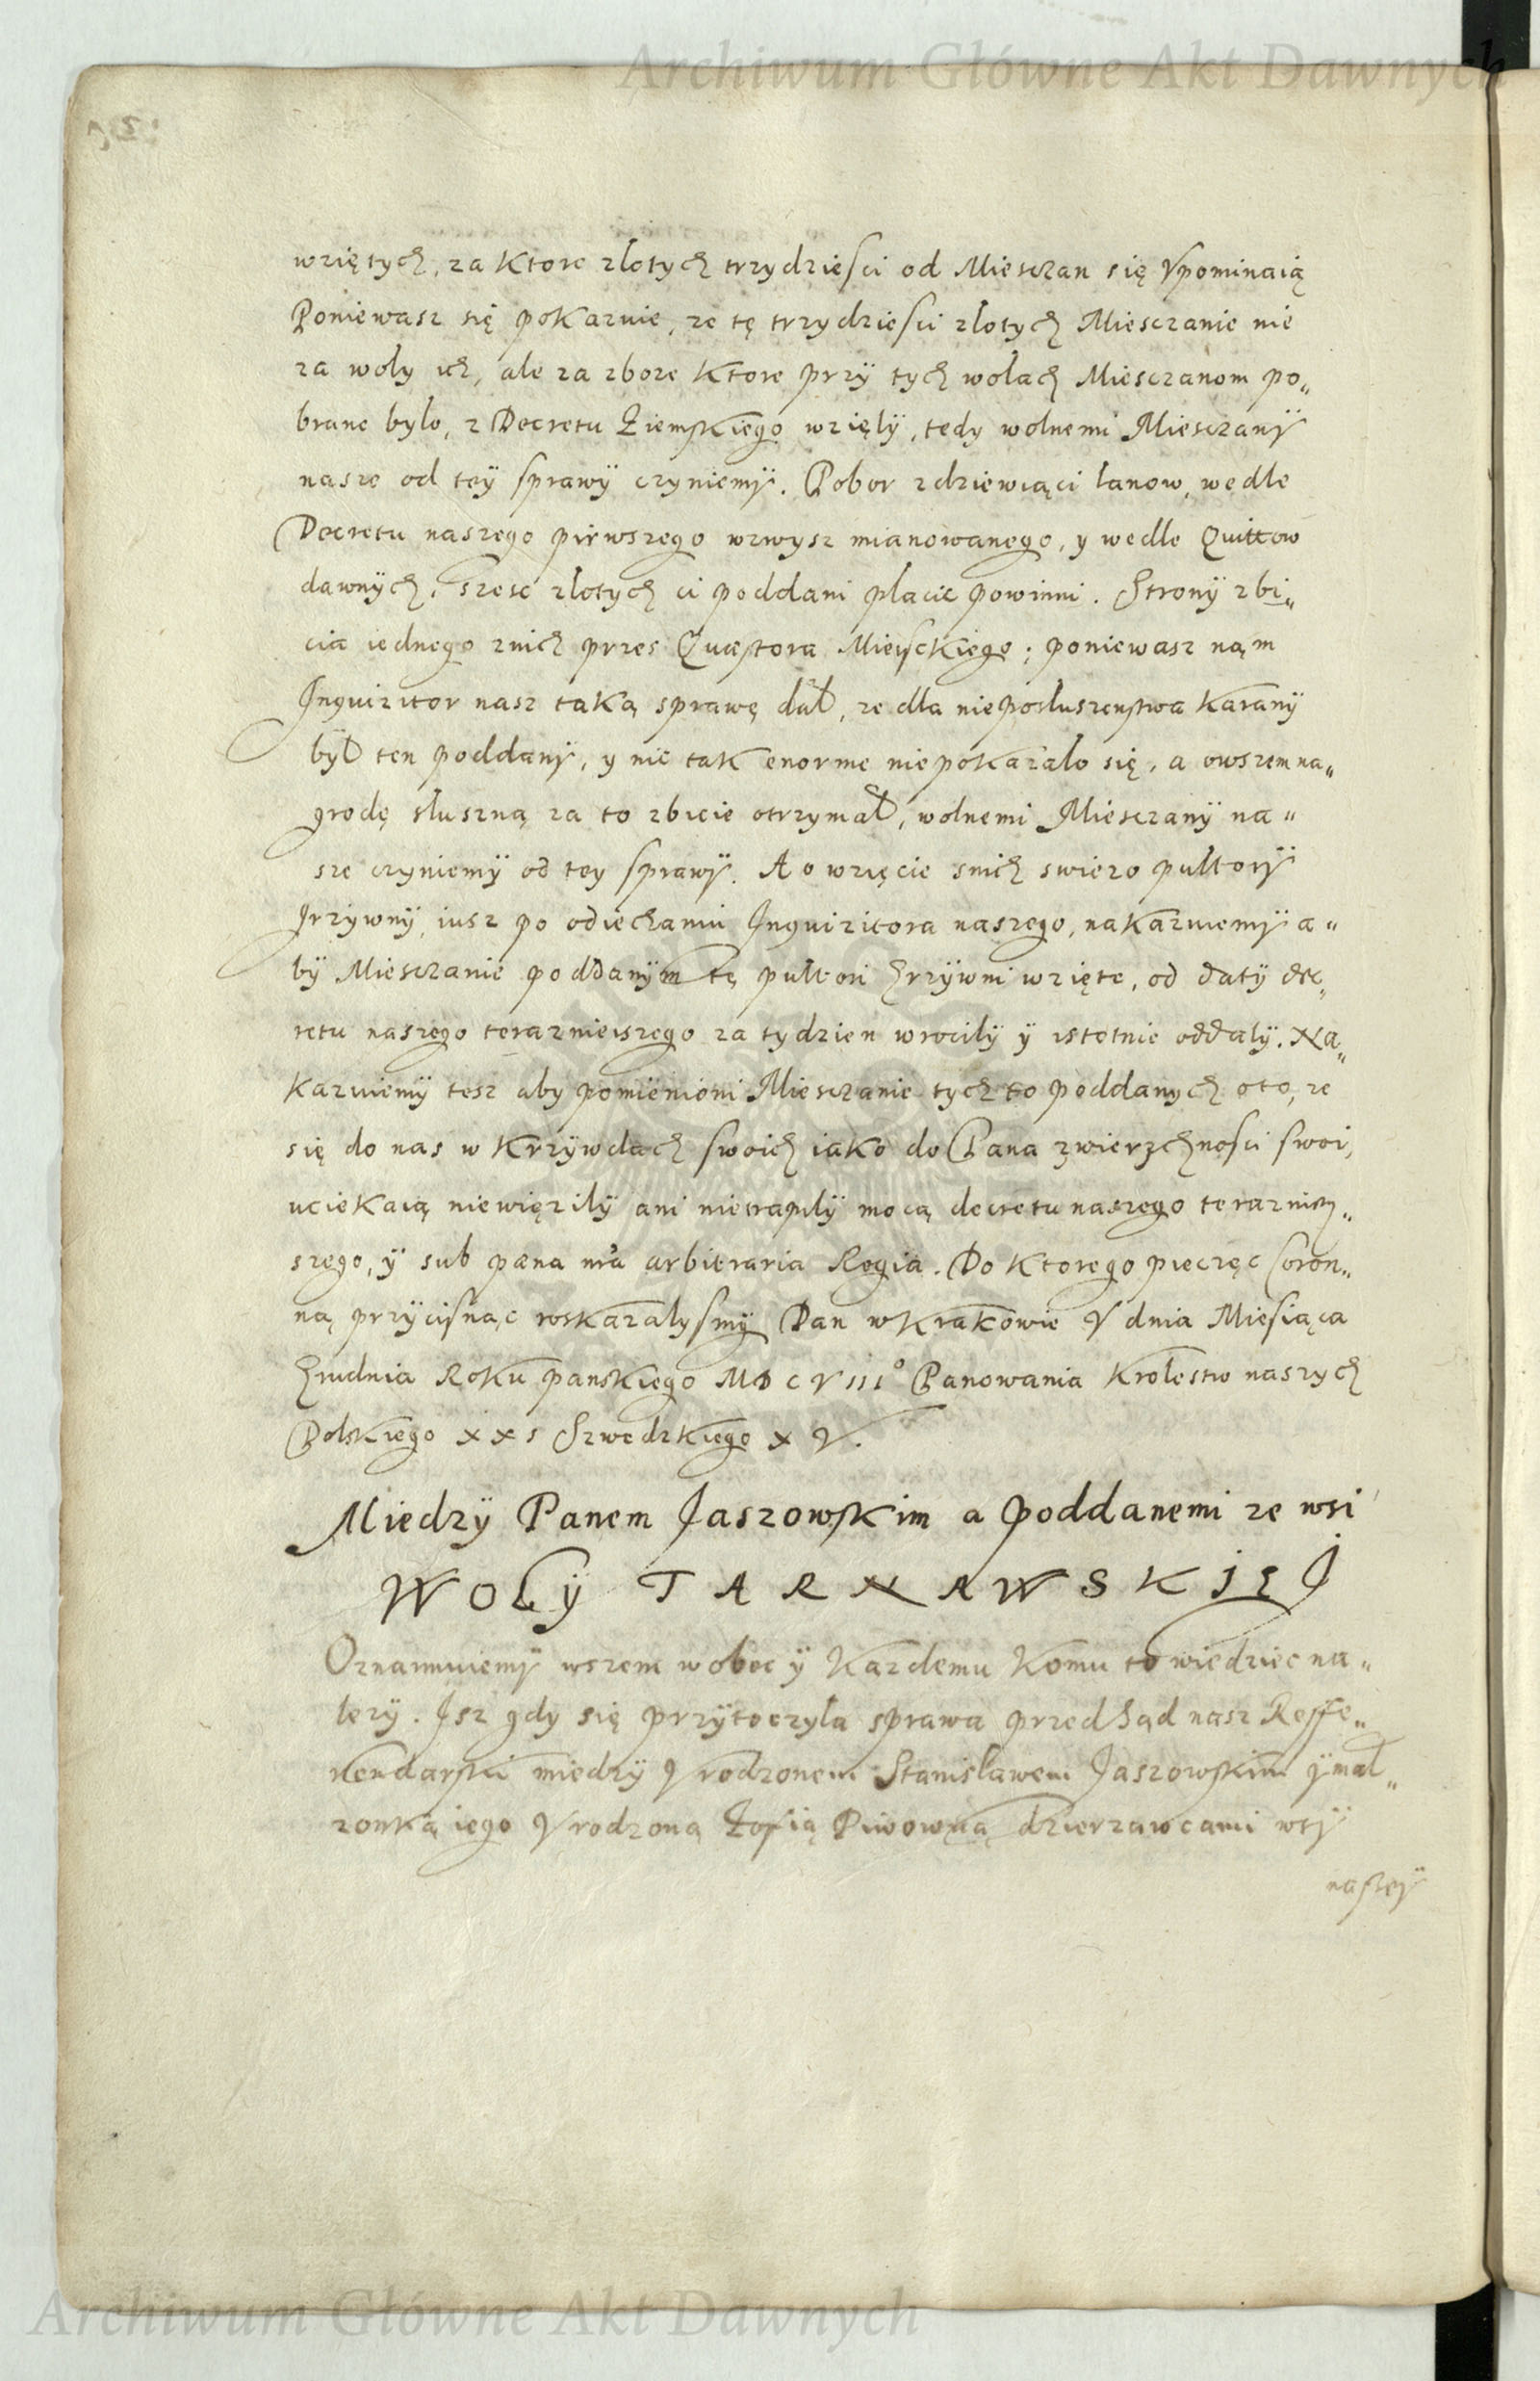 Archiwum Główne Akt Dawnych
wziętych, za Ktore zlotych trzydziesci od Miesczan się Vpominaią
Poniewasz się pokazuie, ze tę trzydziesci zlotych Miesczanie nie
za woly ich, ale za zboze Ktore przÿ tych wolach Miesczanom po„
brane bylo, z Decretu Ziemskiego wzięlÿ, tedy wolnemi Miesczanÿ
nasze od teÿ sprawÿ czyniemÿ. Pobor zdziewiąci lanow, wedle
Decretu naszego pirwszego wzwysz mianowanego, y wedle Quittow
dawnÿch, szesc zlotych ci poddani placic powinni. Stronÿ zbi„
cia iednego znich przes Quæstora Mieisckiego; poniewasz nąm
Inquizitor nasz taką sprawę dał, ze dla nieposluszenstwa Karanÿ
bÿł ten poddanÿ, y nic tak enorme niepokazalo się, a owszem na„
grodę sluszną za to zbicie otrzymał, wolnemi Miesczanÿ na„
sze czyniemÿ od tey sprawÿ. A o wzięcie snich swiezo pultorÿ
grzywnÿ, iusz po odiechaniu Inquizitora naszego, nakazuiemÿ a„
bÿ Miesczanie poddanÿm tę pultori grzÿwni wzięte, od datÿ dec„
retu naszego terazniejszego za tydzien wrocilÿ ÿ istotnie oddalÿ. Na„
Kazuiemÿ tesz aby pomienioni Miesczanie tych to poddanych oto, ze
się do nas w Krzÿwdach swoich iako do Pana zwierzchnosci swoi,
uciekaią niewięzilÿ ani nietrapilÿ mocą decretu naszego teraznieÿ„
szego, ÿ sub pæna nra arbitraria Regia. Do Ktorego pieczęc Coron„
ną przÿcisnąc roskazalysmÿ Dan w Krakowie V dnia Miesiąca
Grudnia Roku panskiego MDCVIII° Panowania Krolestw naszych
Polskiego XXI Szwedzkiego XV.
Miedzÿ Panem Jaszowskim a Poddanemi ze wsi
WOLÿ TARNAWSKIEJ
Oznaimuiemÿ wszem wobec ÿ Kazdemu Komu to wiedziec na„
lezÿ. Isz gdy się przÿtoczyla sprawa przed Sąd nasz Reffe„
rendarski miedzÿ Vrodzonem Stanislawem Jaszowskim ÿ mał„
zonką iego Vrodzoną Zofią Piwowną dzierzawcami wsÿ
naszeÿ
Archiwum Główne Akt Dawnych